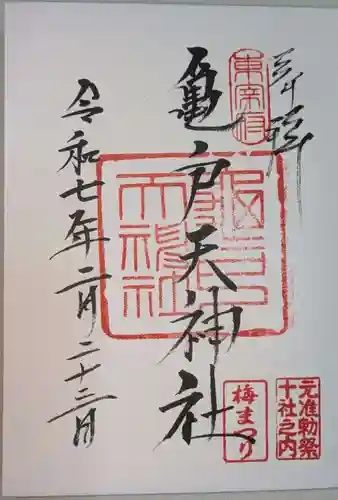 奉拝
東宰府
亀戸天神社
亀戸天神社
令和七年二月二十三日
梅まつり
元准勅祭
十社之内